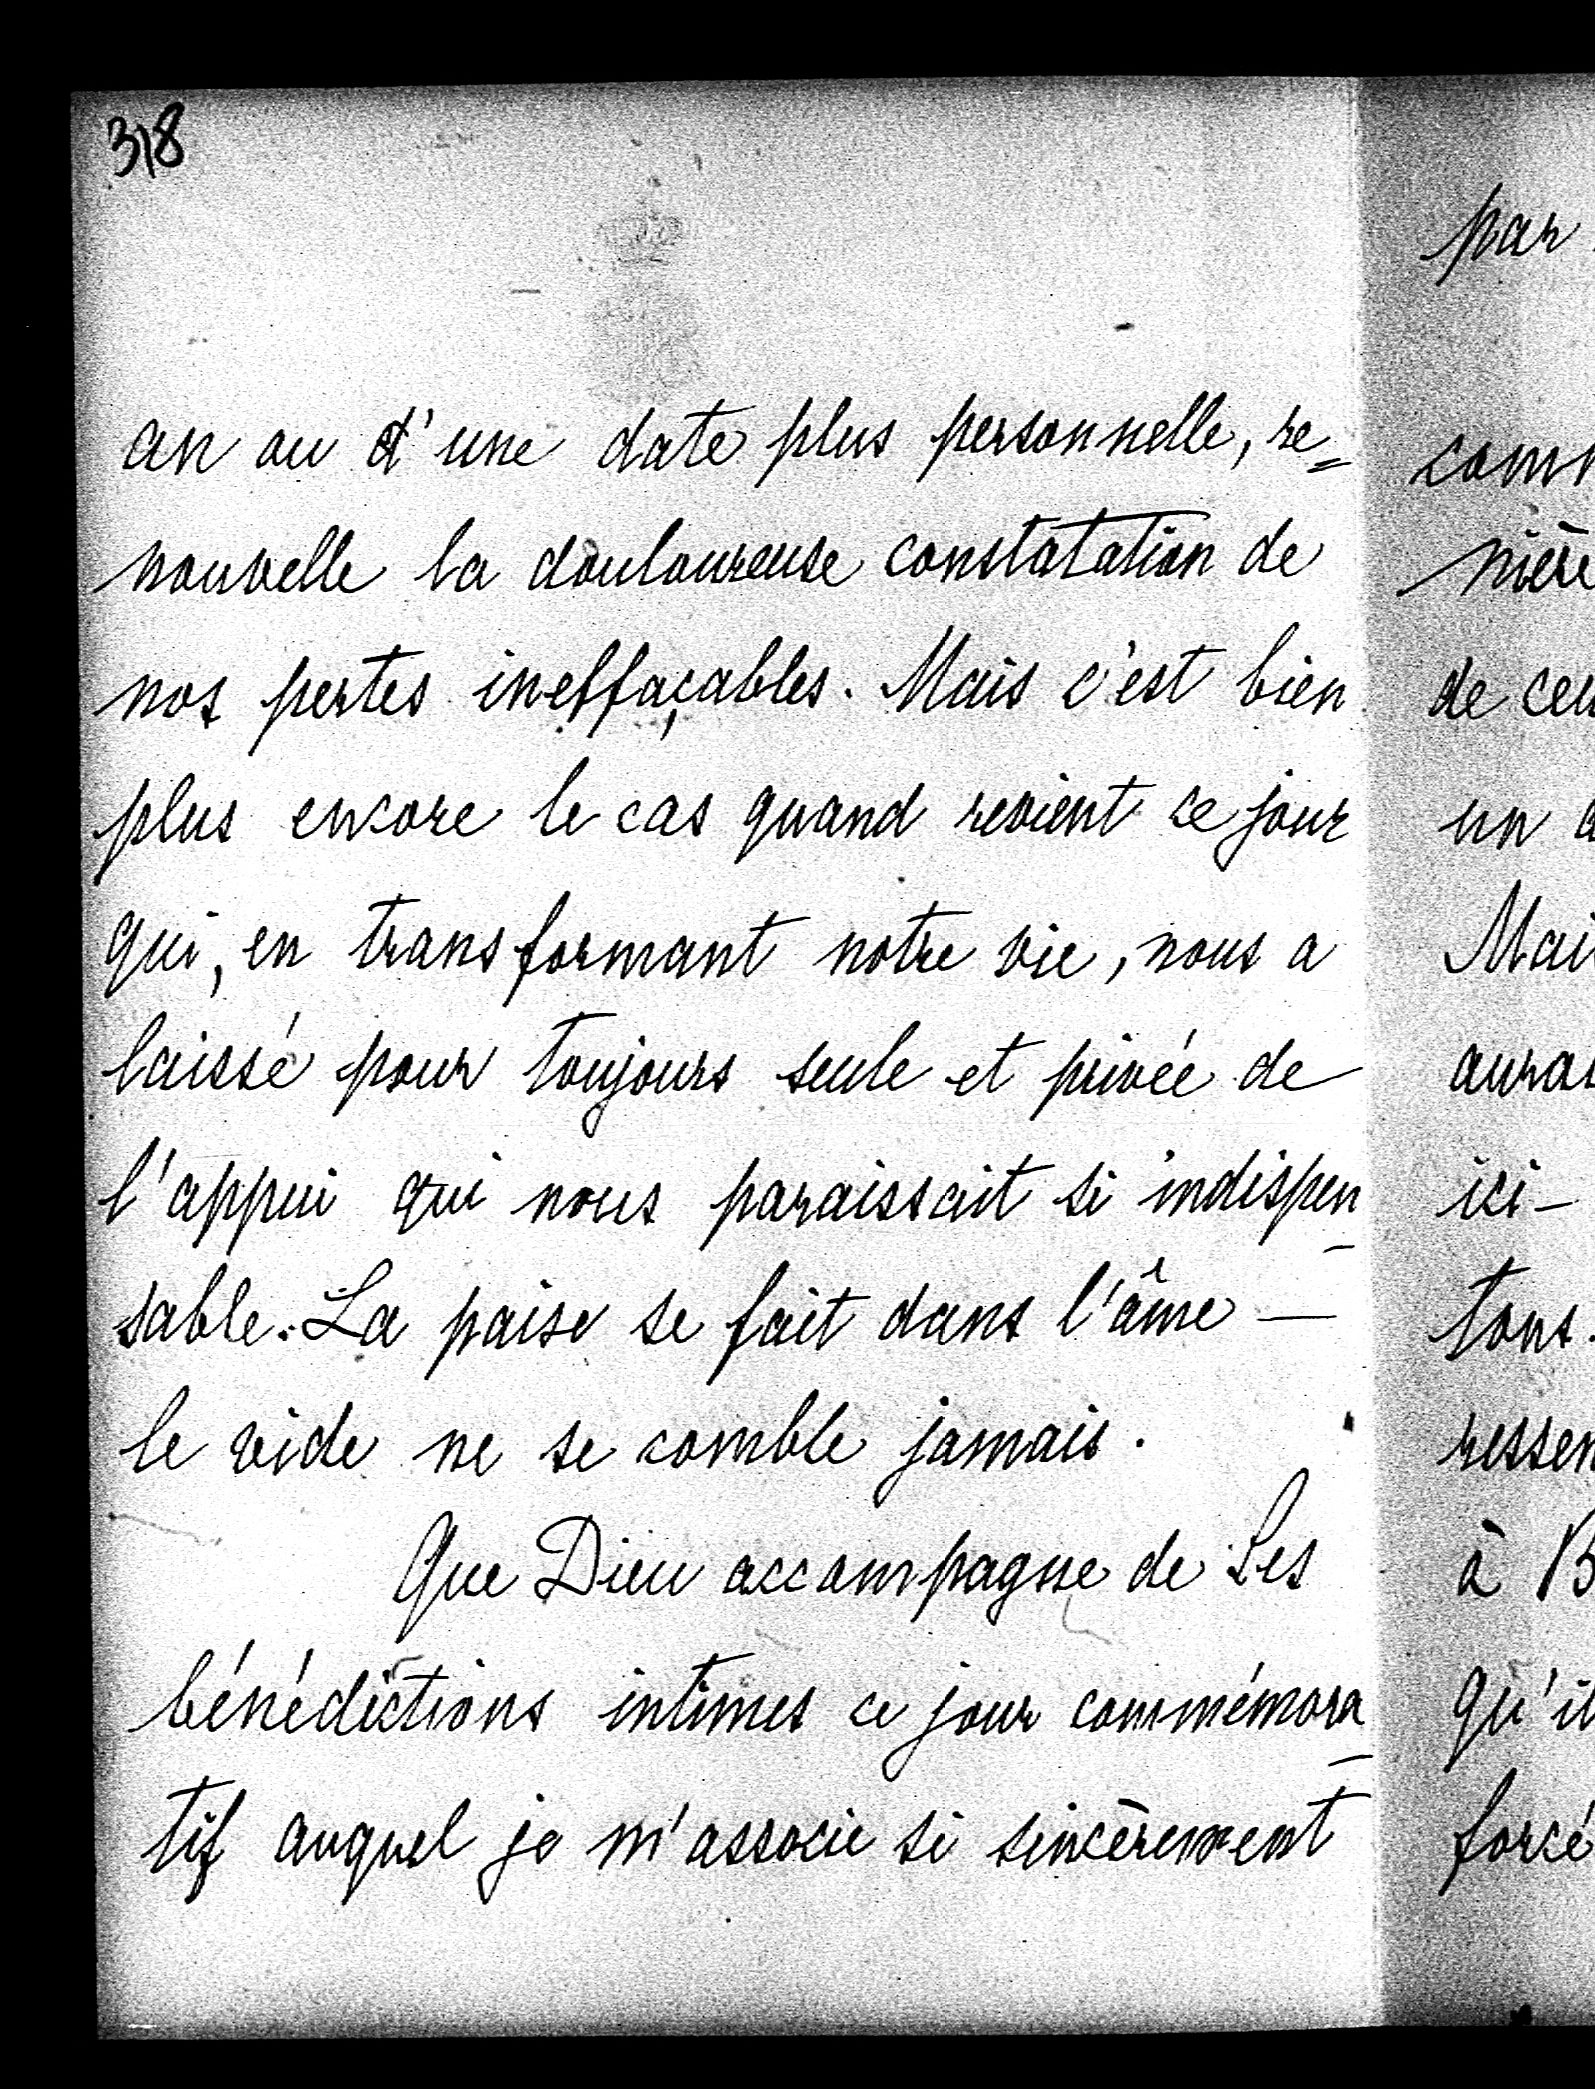 318
an ou d'une date plus personnelle, re=
nouvelle la douloureuse constatation de
nos pertes ineffaçables. Mais c'est bien
plus encore le cas quand revient ce jour
qui, en transformant notre vie, nous a
laissé pour toujours seule et privée de
l'appui qui nous paraissait si indispen-
sable. La paix se fait dans l'âme —
le vide ne se comble jamais.
Que Dieu accompagne de Ses
bénédictions intimes ce jour commémora-
tif auquel je m'associe si sincèrement
par
com
nière
de ceu
un
Mai
aurai
ici-
tons.
ressen
à B
qu'il
forcé